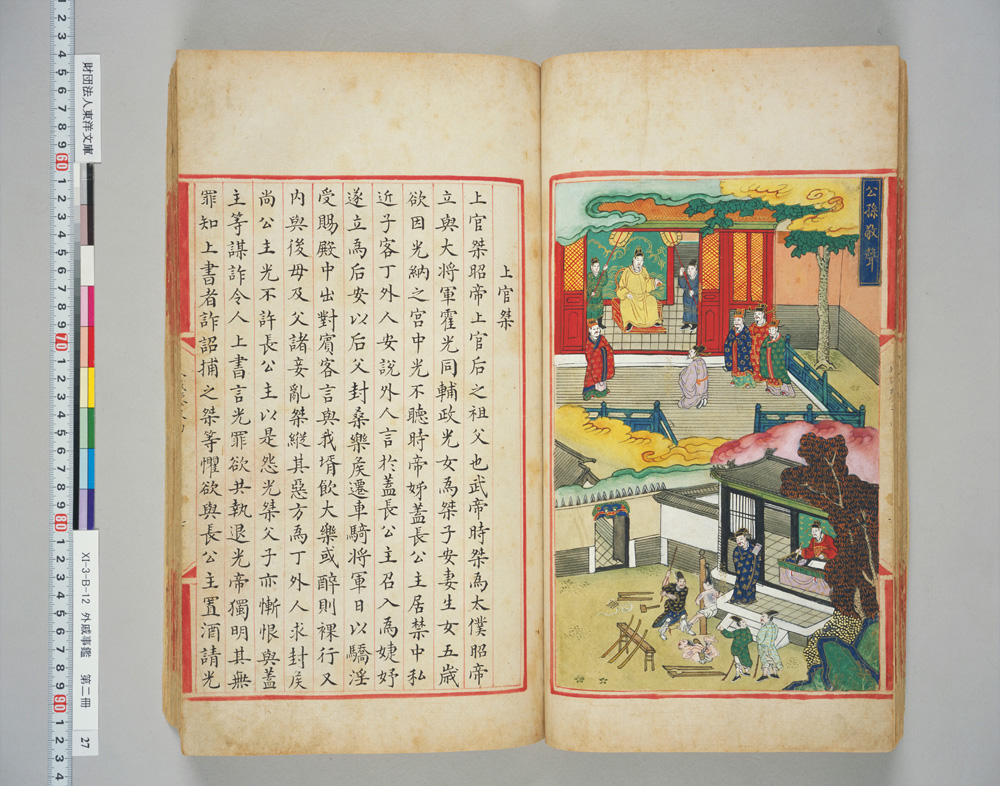 公孫敬聲
上官桀
上官桀昭帝上官后之祖父也武帝時桀為太僕昭帝
立與大將軍霍光同輔政光女為桀子安妻生女五歲
欲因光納之宮中光不聽時帝姊蓋長公主居禁中私
近子客丁外人安說外人言於蓋長公主召入為婕妤
遂立為后安以后父封桑樂矦遷車騎將軍日以驕淫
受賜殿中出對賓客言與我壻飲大樂或醉則裸行又
內與後母及父諸妾亂桀縱其惡方為丁外人求封矦
尚公主光不許長公主以是怨光桀父子亦慚恨與蓋
主等謀詐令人上書言光罪欲共執退光帝獨明其無
罪知上書者詐詔捕之桀等懼欲與長公主置酒請光
財団法人東洋文庫
XI-3-B-12 外戚事鑑 第二冊 27